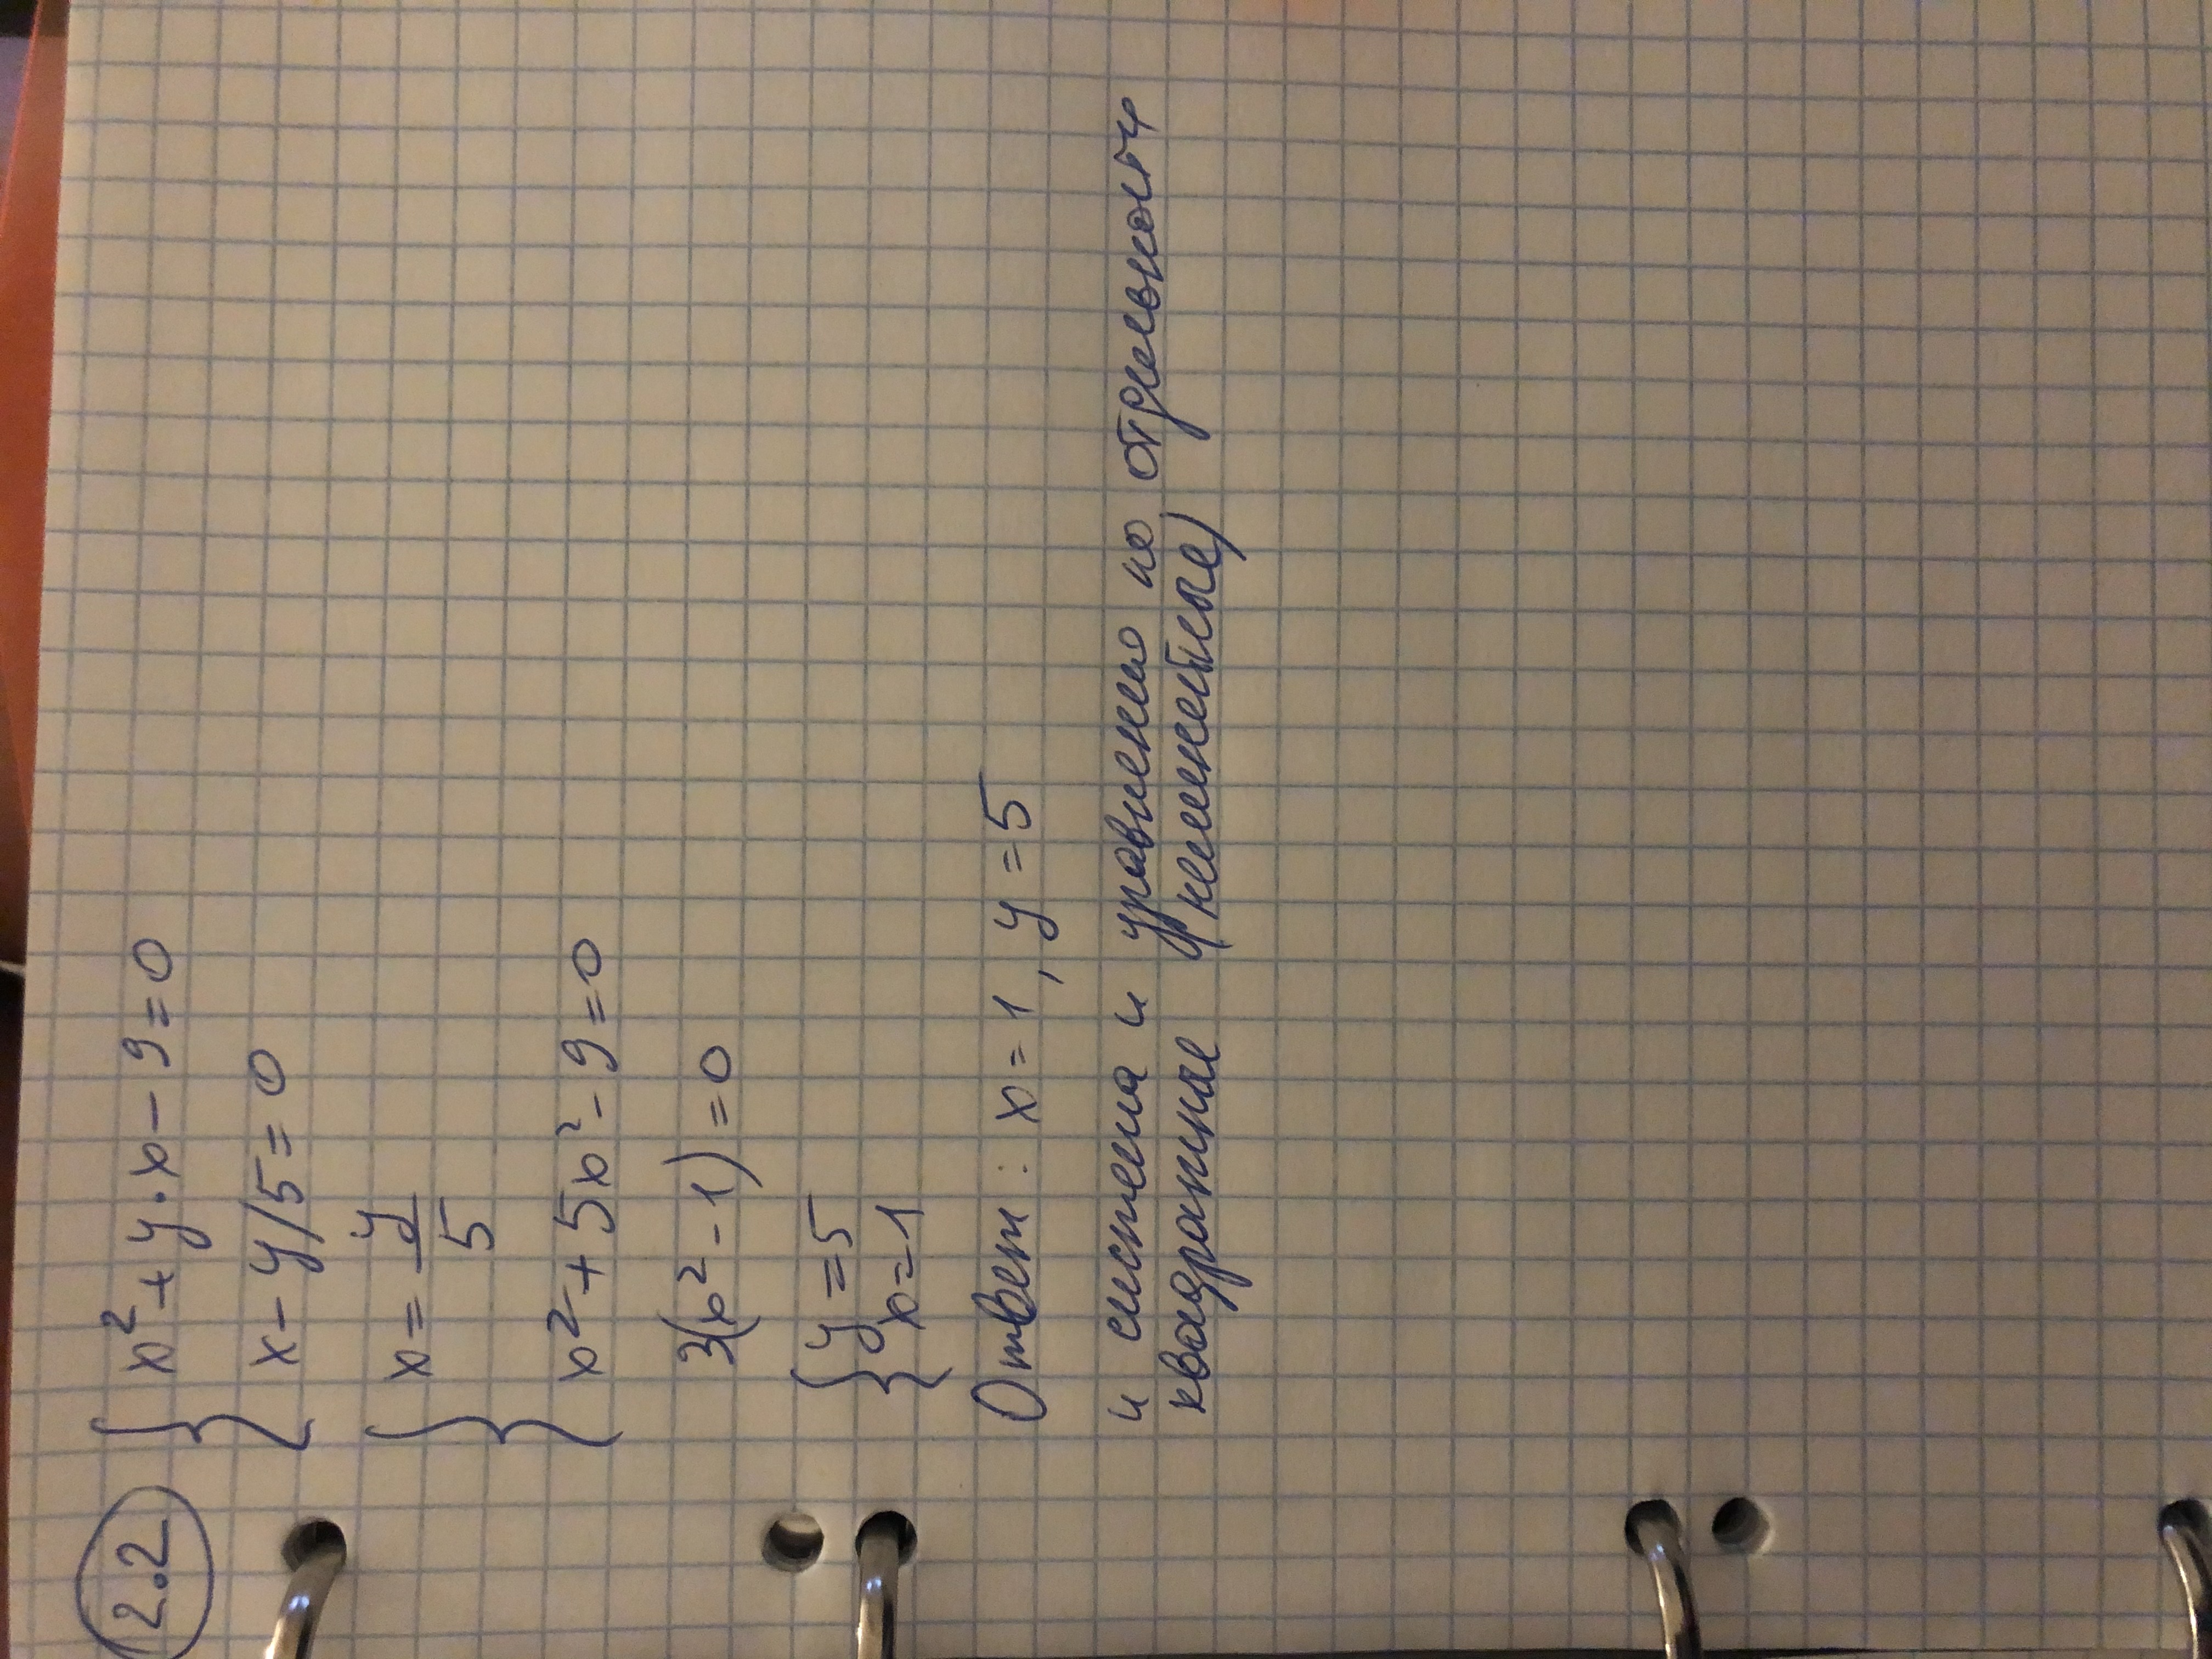 2.2
x² + y·x - 9 = 0
x - y/5 = 0
x = y/5
x² + 5x² - 9 = 0
3(x² - 1) = 0
y = 5
x = 1
Ответ: x = 1, y = 5
и система и уравнения по отдельности
квадратные (нелинейные)